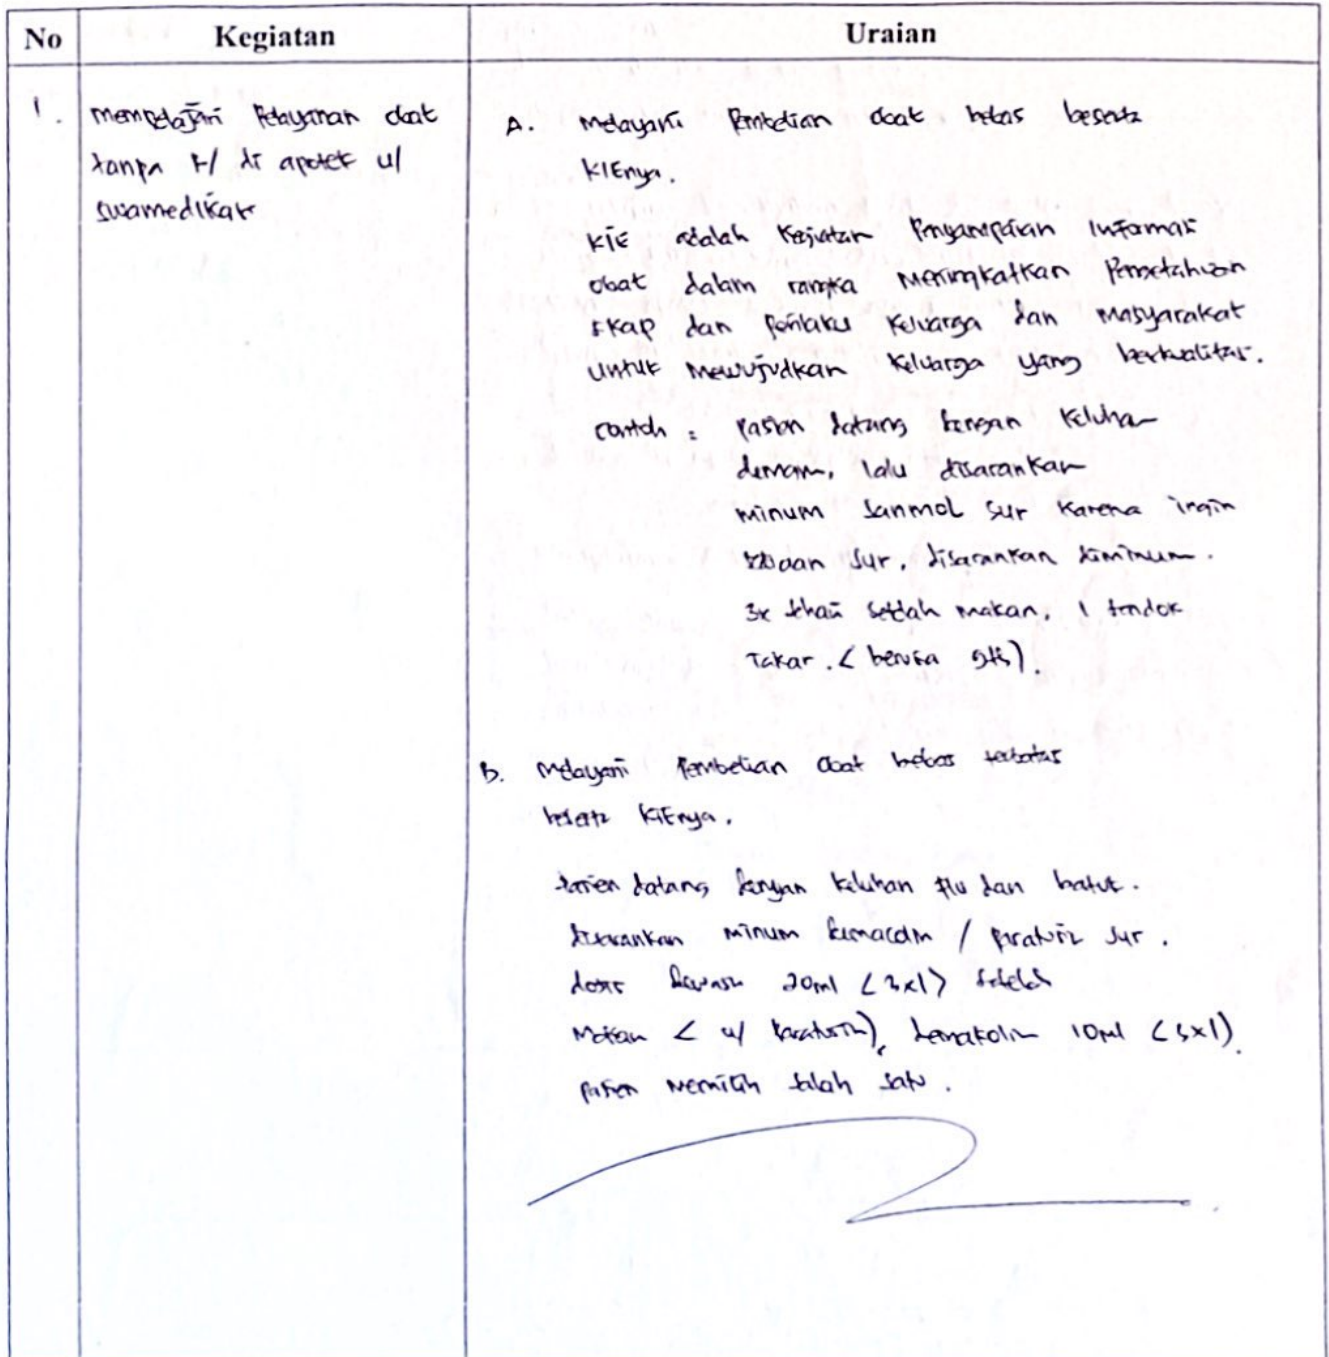 No Kegiatan Uraian
1. Mempelajari Pelayanan obat
tanpa R/ di apotek u/
swamedikasi
A. Melayani Pembelian obat bebas beserta
KIEnya.
KIE adalah Kegiatan Penyampaian Informasi
obat dalam rangka Meningkatkan Pengetahuan
sikap dan perilaku Keluarga dan Masyarakat
untuk Mewujudkan Keluarga yang berkualitas.
contoh : pasien datang dengan keluhan
demam, lalu disarankan
minum Sanmol syr Karena ingin
syr, disarankan diminum.
3x sehari setelah makan, 1 sendok
Takar. (berusia 5th).
B. Melayani Pembelian obat bebas terbatas
beserta KIEnya.
pasien datang dengan keluhan flu dan batuk.
disarankan minum / syr.
dosis dewasa 20ml (3x1) setelah
Makan ( u/ ), 10ml (3x1).
pasien Memilih salah satu.